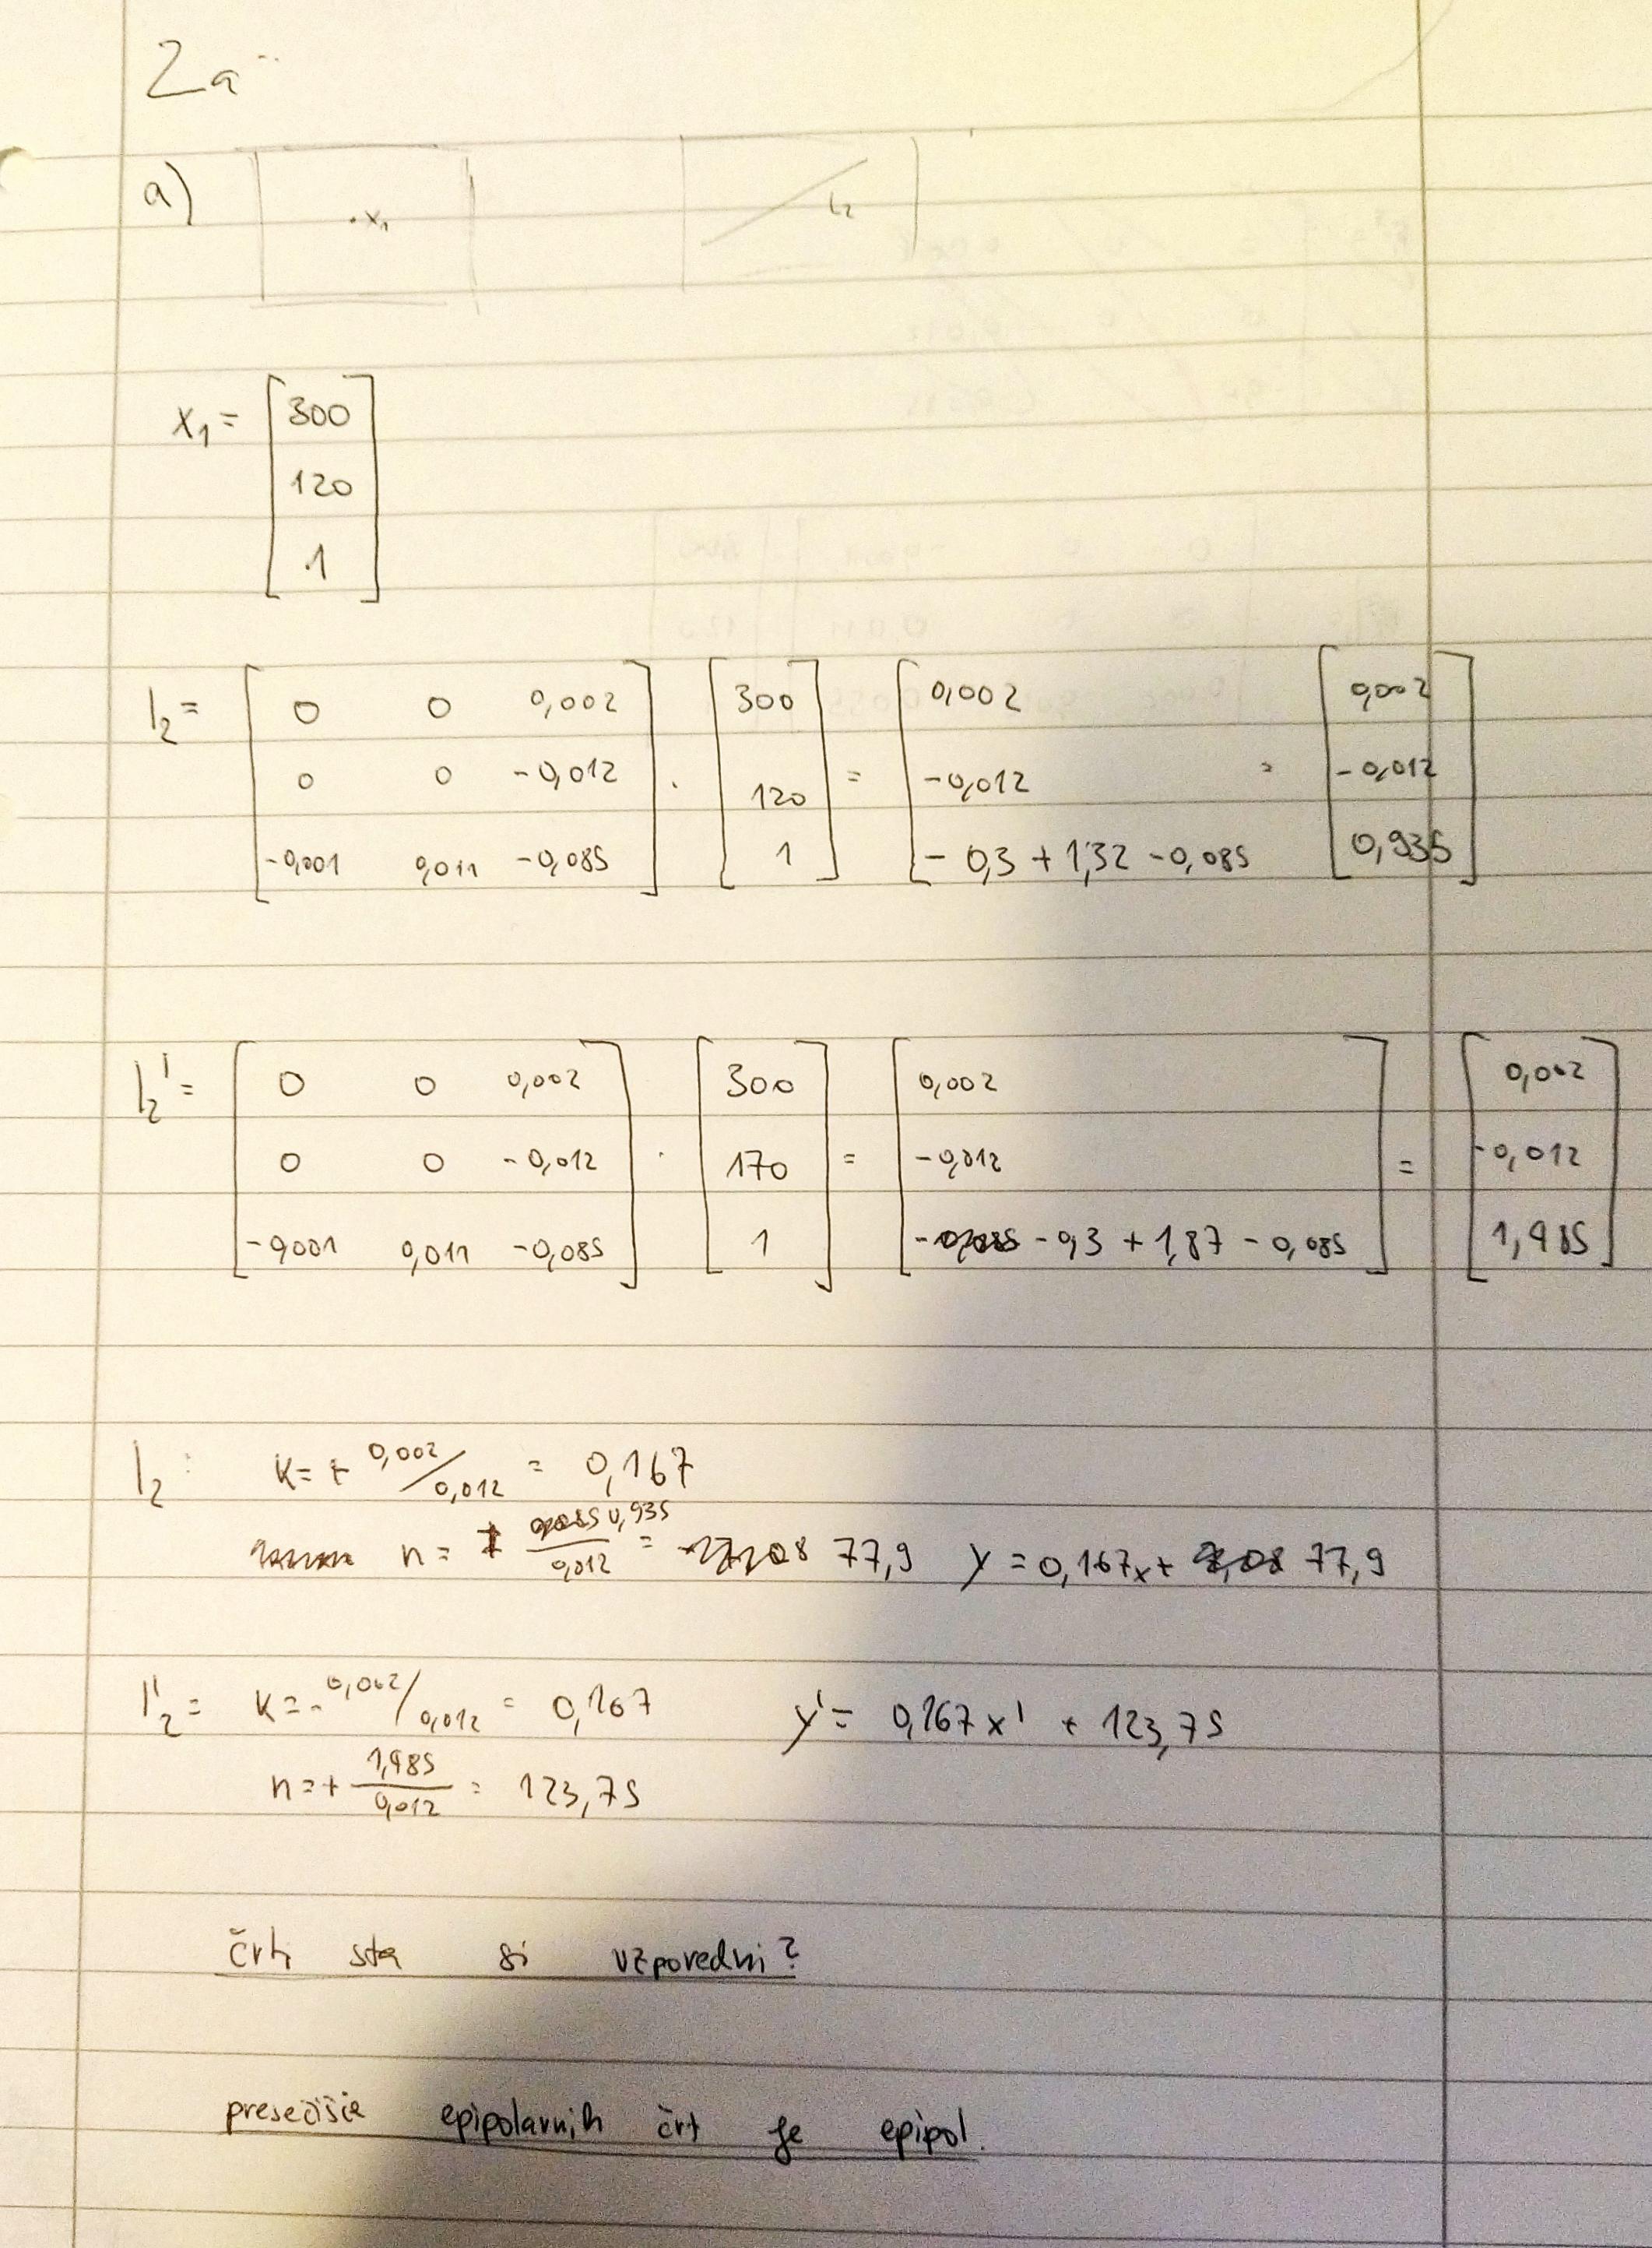 2a
a)
. x₁
l₂
x₁ = [ 300
120
1 ]
l₂ = [ 0 0 0,002 ] · [ 300 ] = [ 0,002 ] = [ 0,002 ]
[ 0 0 -0,012 ] [ 120 ] [ -0,012 ] [ -0,012 ]
[ -0,001 0,011 -0,085 ] [ 1 ] [ - 0,3 + 1,32 - 0,085 ] [ 0,935 ]
l₂' = [ 0 0 0,002 ] · [ 300 ] = [ 0,002 ] = [ 0,002 ]
[ 0 0 -0,012 ] [ 170 ] [ -0,012 ] [ -0,012 ]
[ -0,001 0,011 -0,085 ] [ 1 ] [ - 0,3 + 1,87 - 0,085 ] [ 1,485 ]
l₂ : k = + 0,002/0,012 = 0,167
n = + 0,935/0,012 = 77,9 y = 0,167x + 77,9
l₂' = k = - 0,002/0,012 = 0,167 y' = 0,167x' + 123,75
n = + 1,485/0,012 = 123,75
črti sta si vzporedni?
presečišče epipolarnih črt je epipol.